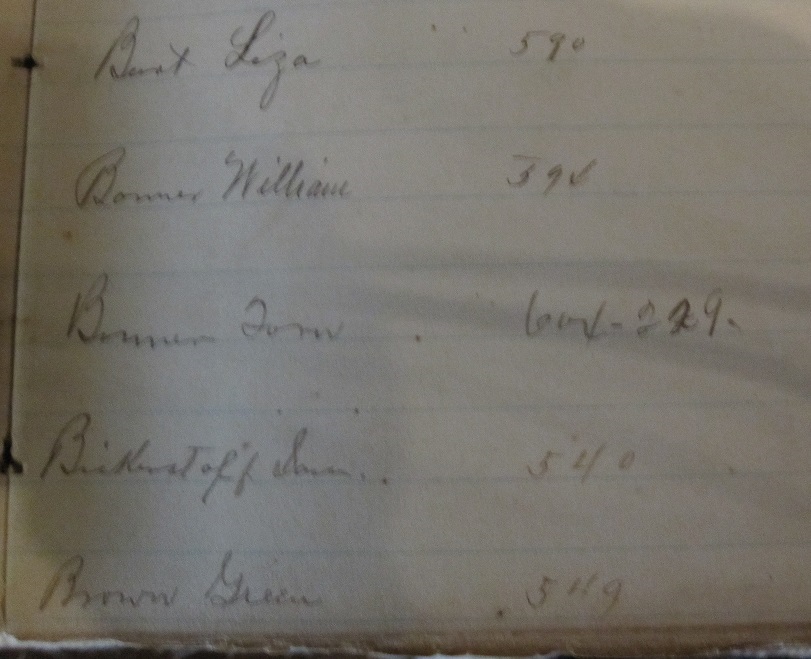 Burt Liza 590
Bonner William 594
Bonner Tom 604-229.
Bickerstaff Sam. 540
Brown Green 549